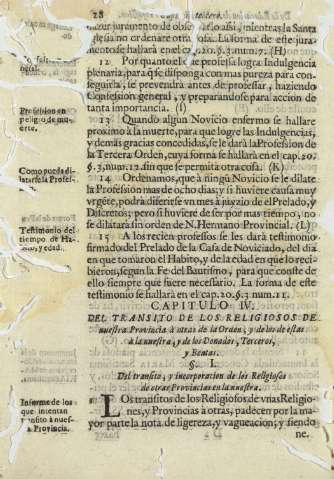 28 Cap. tercero.
hazer juramento de observarlo assi, mientras la Santa
Iglesia no ordenare otra cosa. La forma de este jura-
mento se hallarà en el cap. 20. §. 3. num. 7. (H)
12 Por quanto el que professa logra Indulgencia
plenaria, para q̃ se disponga con mas pureza para conse-
guirla, se prevendrà antes de professar, haziendo
Confession general, y preparandose para accion de
tanta importancia. (I)
Profession en
peligro de mu-
erte.
13 Quando algun Novicio enfermo se hallare
proximo à la muerte, para que logre las Indulgencias,
y demàs gracias concedidas, se le darà la Profession de
la Tercera Orden, cuya forma se hallarà en el cap. 20.
§. 3. num. 12. sin que se permita otra cosa. (K)
Como pueda di-
latarse la Profes-
sion.
14 Ordenamos, que à ningũ Novicio se le dilate
la Profession mas de ocho dias; y si huviere causa muy
vrgẽte, podrà diferirse vn mes à juyzio de el Prelado, y
Discretos; pero si huviere de ser por mas tiempo, no
se dilatarà sin orden de N. Hermano Provincial. (L)
Testimonio del
tiempo de Ha-
bito, y edad.
15 A los recien professos se les darà testimonio
firmado del Prelado de la Casa de Noviciado, del dia
en que tomaron el Habito, y de la edad en que lo reci-
bieron, segun la Fe del Bautismo, para que conste de
ello siempre que fuere necessario. La forma de este
testimonio se hallarà en el cap. 20. §. 3. num. 11.
CAPITULO IV.
DEL TRANSITO DE LOS RELIGIOSOS DE
nuestra Provincia à otras de la Orden; y de los de estas
à la nuestra, y de los Donados, Terceros,
y Beatas.
§. I.
Del transito, y incorporacion de los Religiosos
de otras Provincias en la nuestra.
Informe de los
que intentan
transito à nues-
tra Provincia.
Los transitos de los Religiosos de vnas Religio-
nes, y Provincias à otras, padecen por la ma-
yor parte la nota de ligereza, y vagueacion; y siendo
ne.